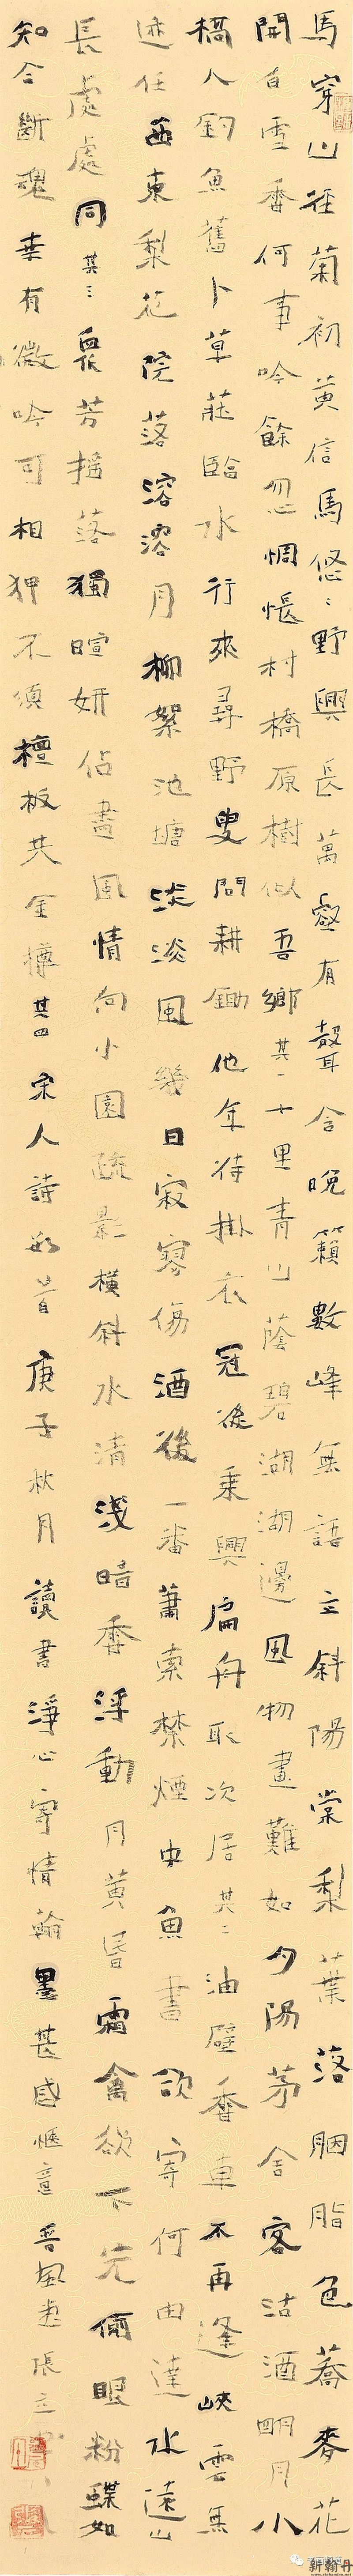 馬穿山徑菊初黃信馬悠悠野興長萬壑有聲含晚籟數峰無語立斜陽棠梨葉落胭脂色蕎麥花
開白雪香何事吟餘忽惆悵村橋原樹似吾鄉其一十里青山蔭碧湖湖邊風物畫難如夕陽茅舍客沽酒明月小
橋人釣魚舊卜草莊臨水行來尋野叟問耕鋤他年待掛衣冠後乘興扁舟取次居其二油壁香車不再逢峽雲無
迹任西東梨花院落溶溶月柳絮池塘淡淡風幾日寂寥傷酒後一番蕭索禁煙中魚書欲寄何由達水遠山
長處處同其三眾芳搖落獨暄妍佔盡風情向小園疏影橫斜水清淺暗香浮動月黃昏霜禽欲下先偷眼粉蝶如
知合斷魂幸有微吟可相狎不須檀板共金樽其四宋人詩首庚子秋月讀書淨心寄情翰墨甚感愜意晉風張立
新翰丹